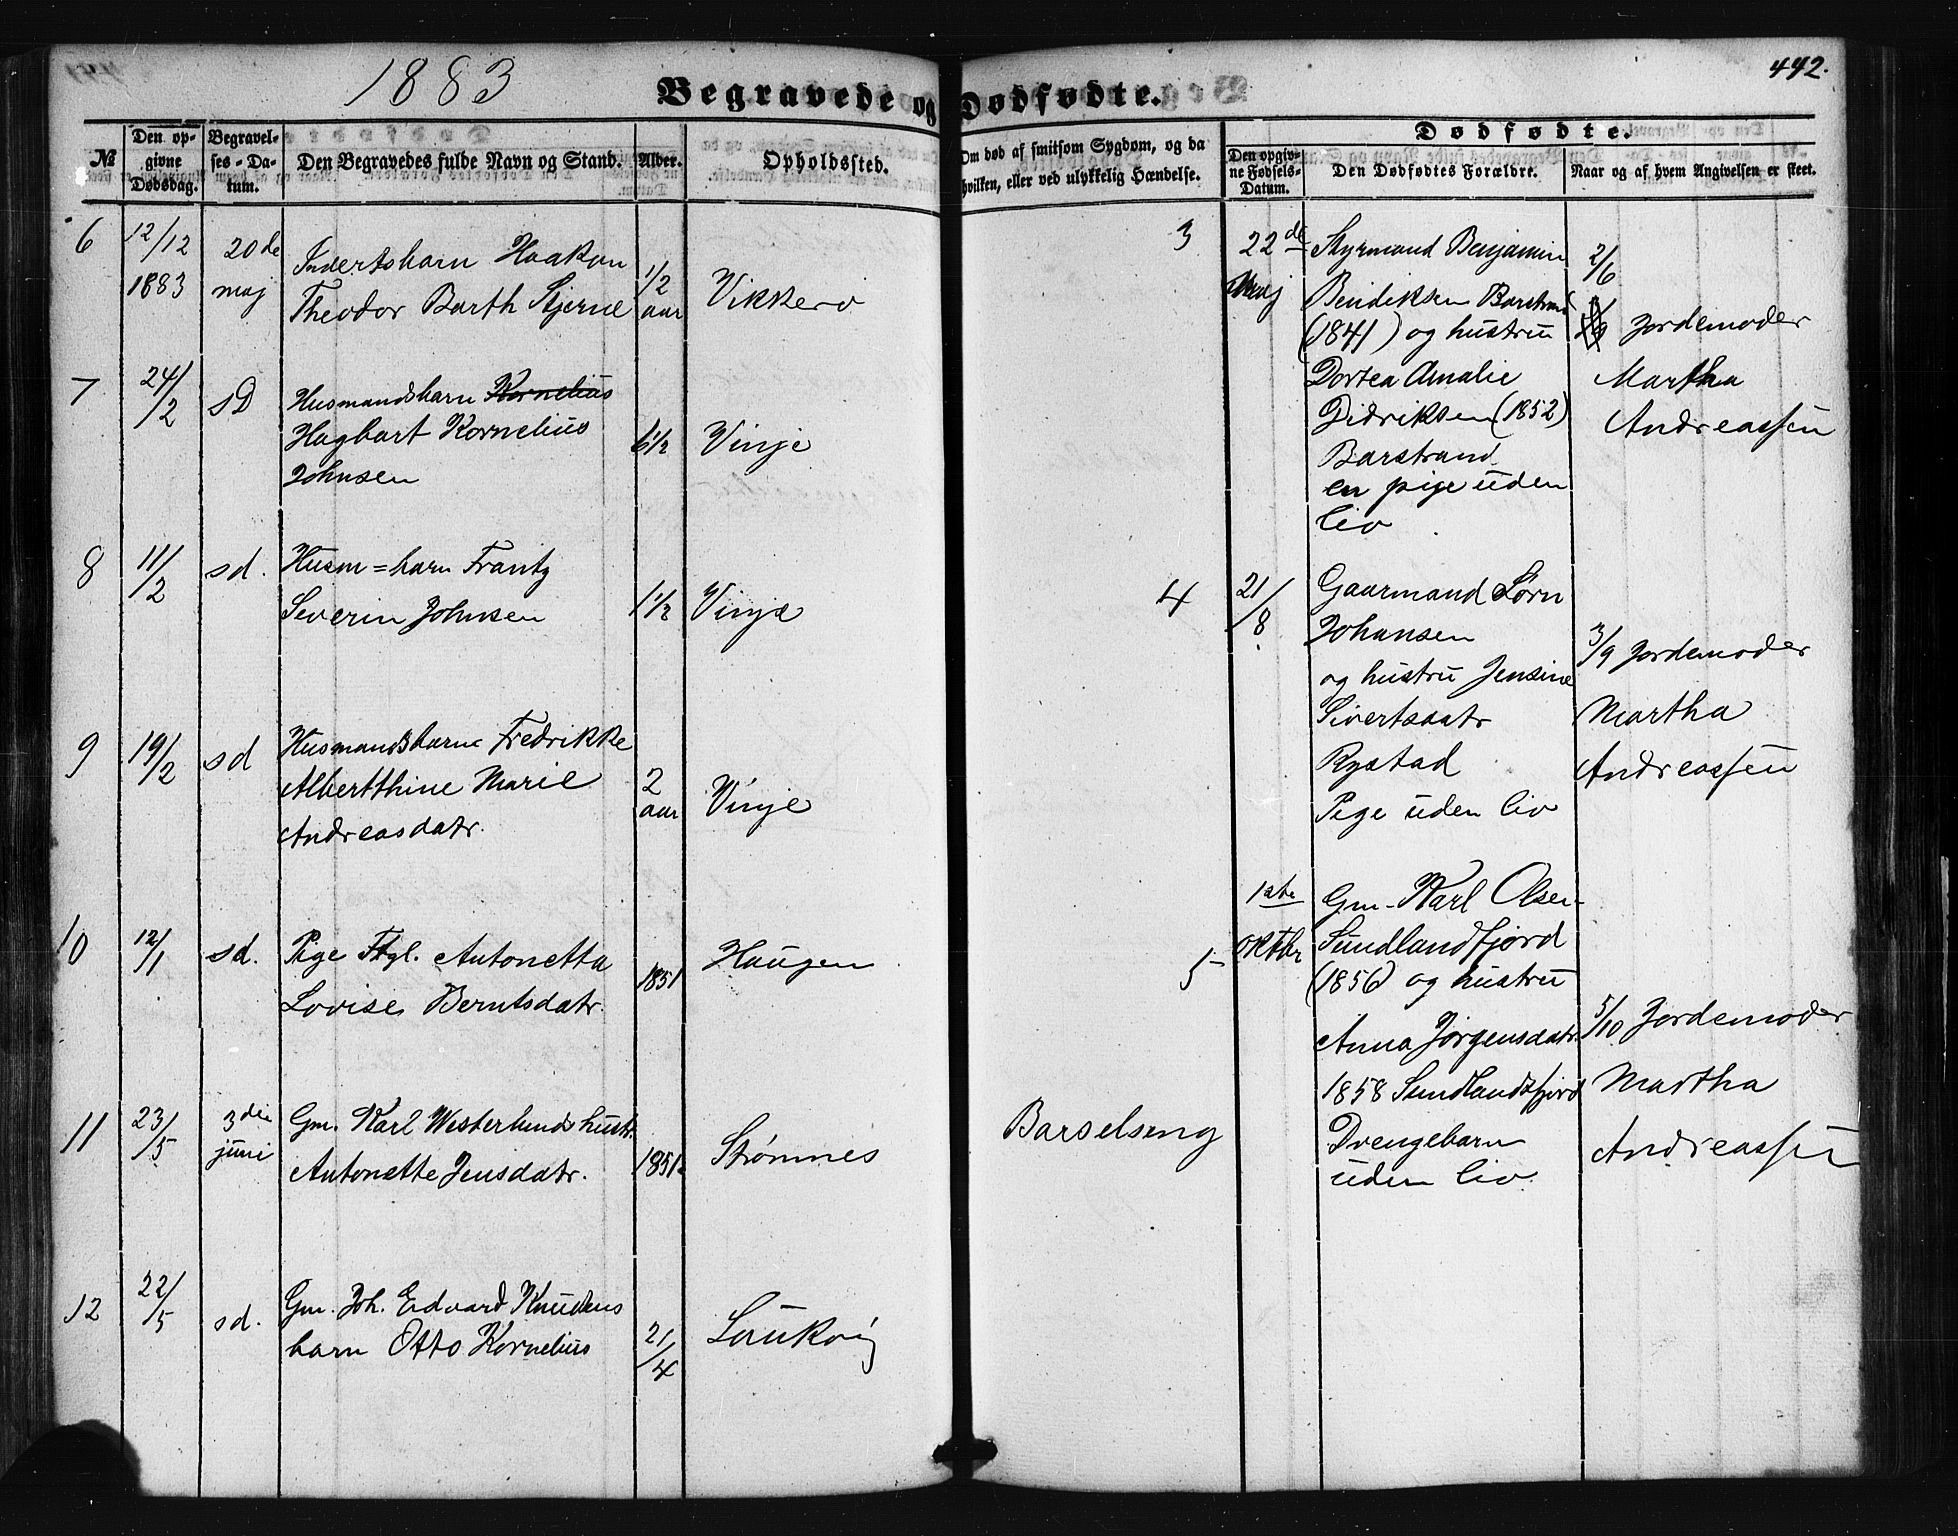 1883
442.
Begravede og Dødfødte.
№
Den opgivne Dødsdag.
Begravelses-Datum.
Den Begravedes fulde Navn og Stand.
Alder.
Opholdssted.
Om død af smitsom Sygdom, og da hvilken, eller ved ulykkelig Hændelse.
Dødfødte.
Den opgivne Fødsels-Datum.
Den Dødfødtes Forældre.
Naar og af hvem Angivelsen er skeet.
6
12/12
1883
20de
maj
Indertsbarn Haakon
Theodor Barth Stjerne
1/2
aar
Vikkerø
7
24/2
sD
Husmandsbarn Kornelius
Hagbart Kornelius
Johnsen
6 1/2
Vinje
8
11/2
sd.
Husm=barn Frantz
Severin Johnsen
1 1/2
Vinje
9
19/2
sd
Husmandsbarn Fredrikke
Albertthine Marie
Andreasdatr.
2
aar
Vinje
10
12/1
sd.
Pige Ftgl. Antonetta
Lovise Berntsdatr.
1851
Haugen
11
23/5
3die
juni
Gm. Karl Westerlunds hustr.
Antonette Jensdatr.
1851
Strømnes
Barselseng
12
22/5
sd.
Gm. Joh. Edvard Knudsens
barn Otto Kornelius
21/4
Laukvig
3
22de
Maj
Styrmand Benjamin
Bendiksen Barstrand
(1841) og hustru
Dortea Amalie
Didriksen (1852)
Barstrand
en pige uden
liv
2/6
Jordemoder
Martha
Andreassen
4
21/8
Gaarmand Sørn
Johansen
og hustru Jensine
Sivertsdatr
Rystad
Pige uden liv
3/9 Jordemoder
Martha
Andreassen
5
1ste
oktbr
Gm. Karl Olsen
Sundlandfjord
(1856) og hustru
Anna Jørgensdatr.
1858 Sundlandsfjord
Drengebarn
uden liv.
5/10 Jordemoder
Martha
Andreassen